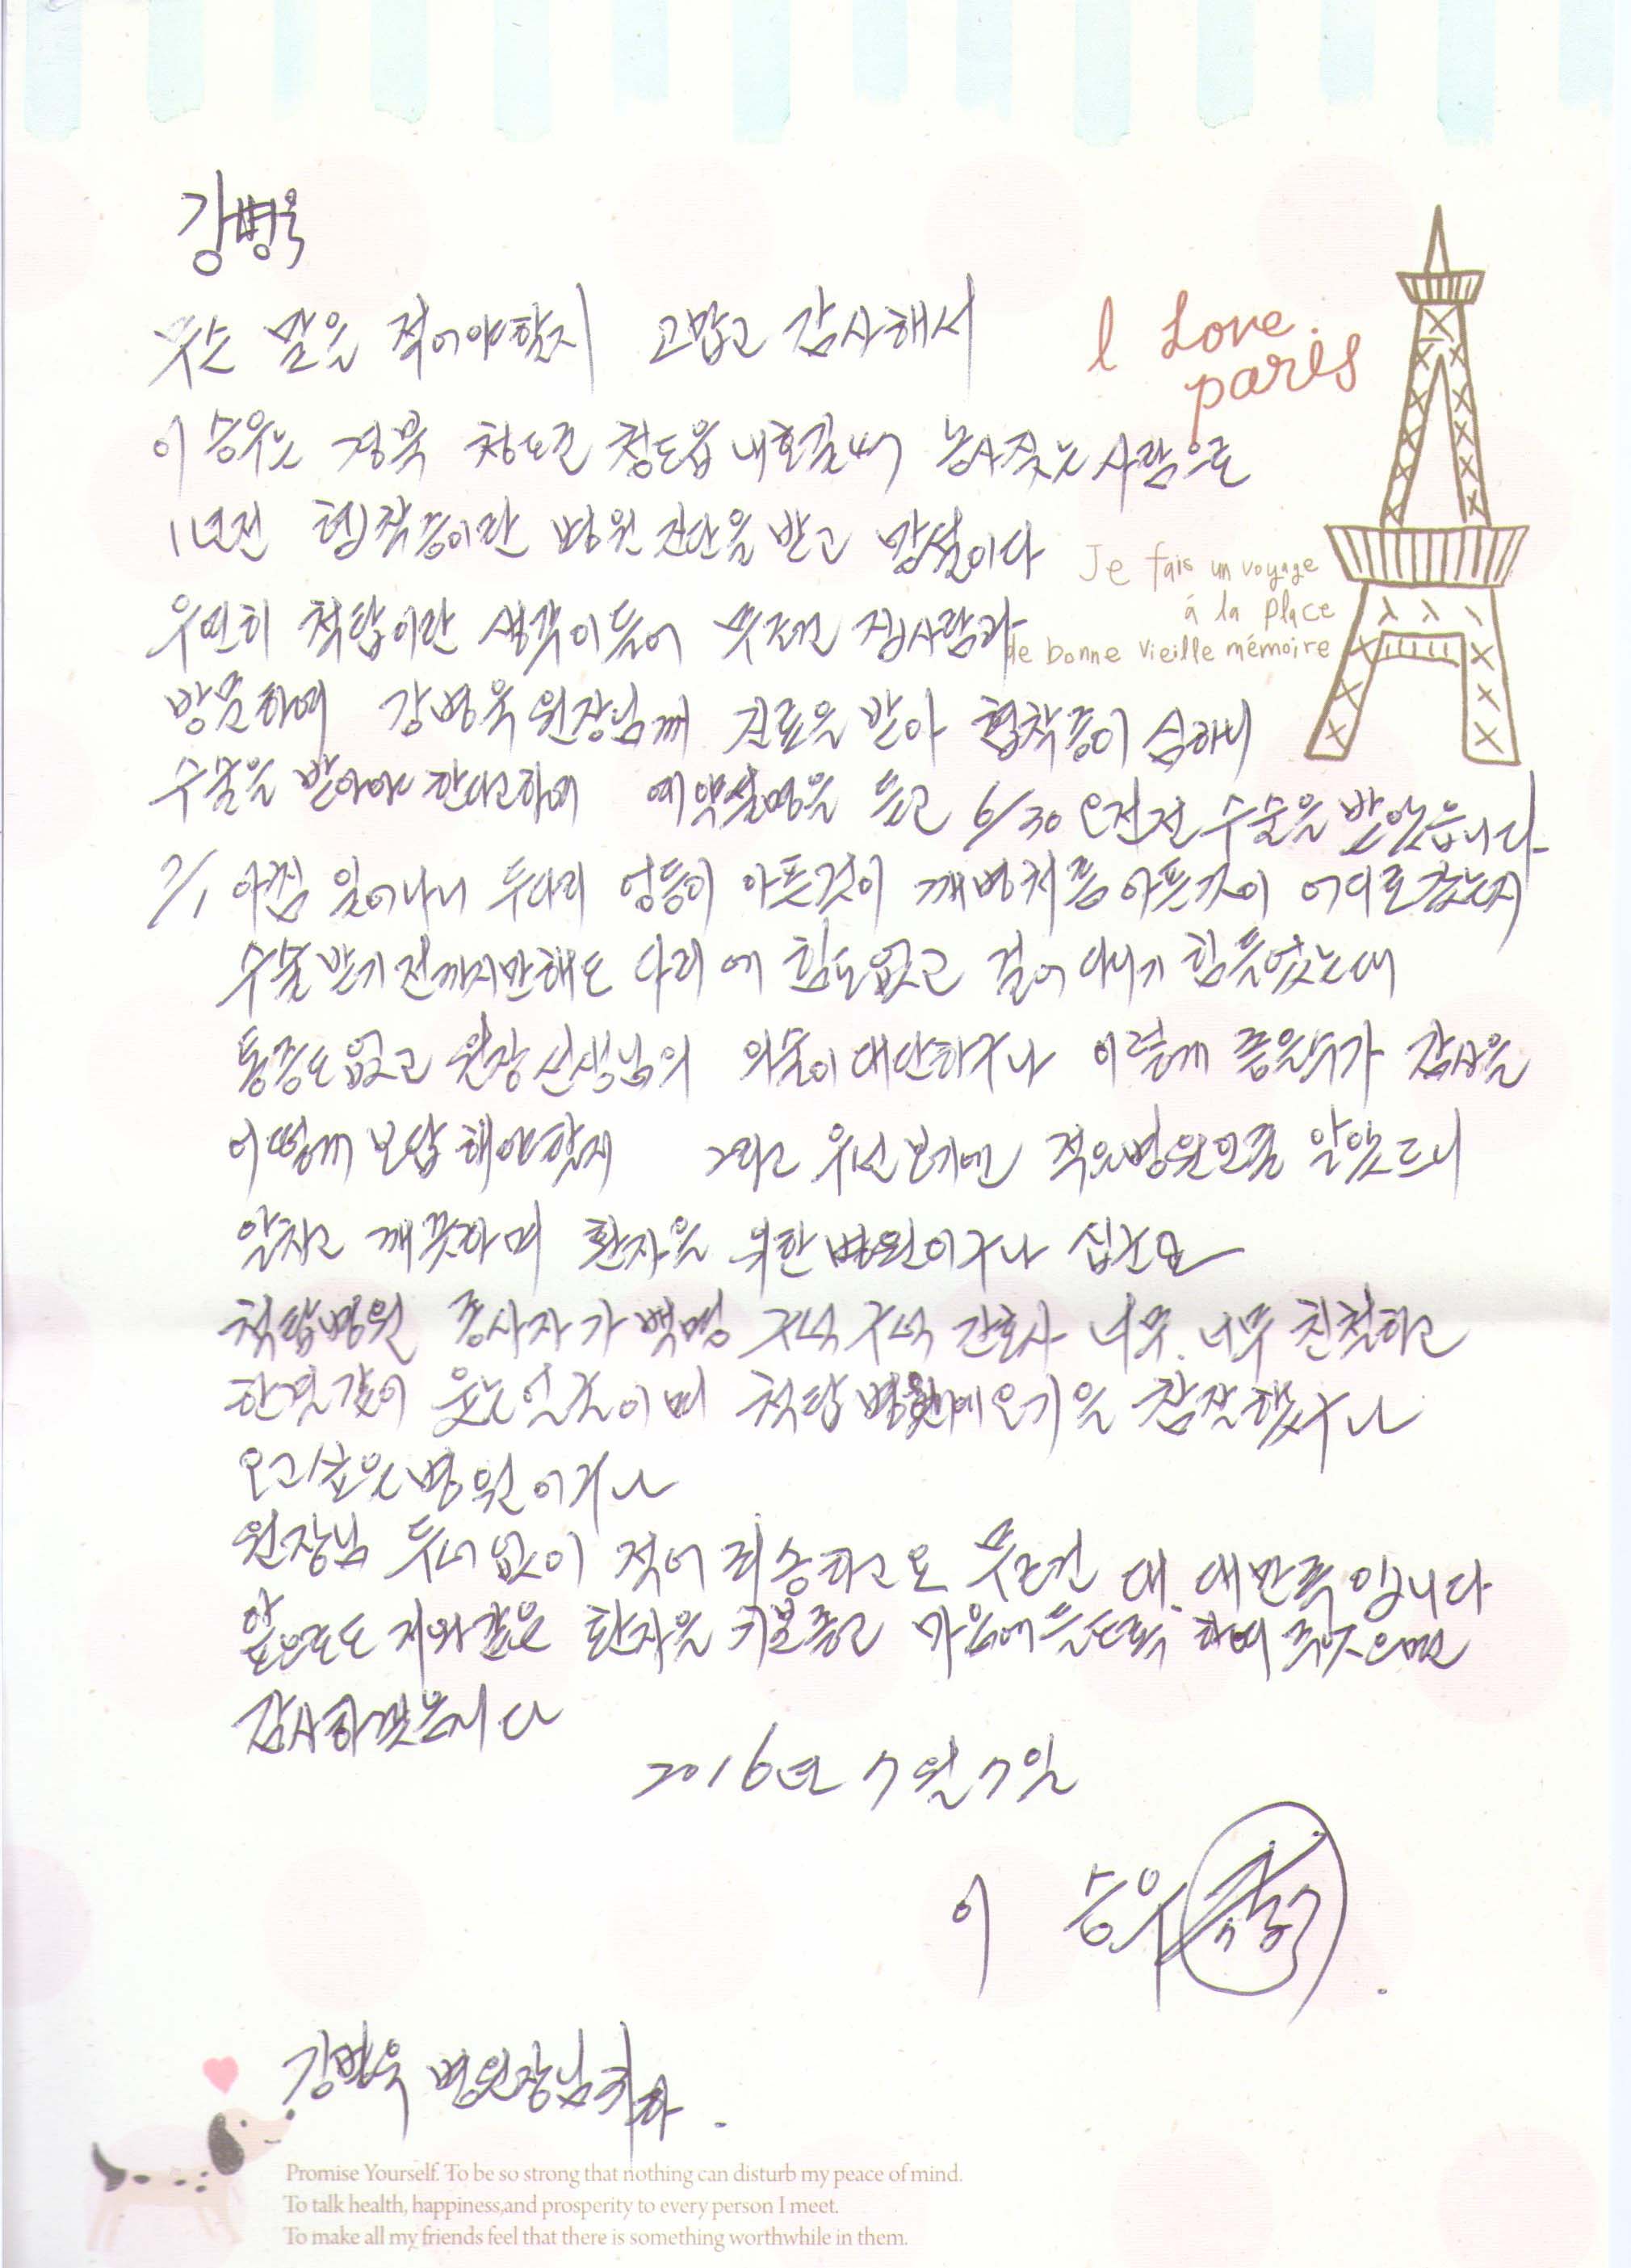 강병욱
무슨 말을 적어야할지 고맙고 감사해서
I Love
paris
이승우는 경북 청도군 청도읍 내호길47 농사짓는 사람으로
1년전 협착증이란 병원 진단을 받고 망설이다
Je fais un voyage
á la Place
de bonne vieille mémoire
우연히 척탑이란 생각이들어 무조건 집사람과
방문하여 강병욱 원장님께 진료을 받아 협착증이 심하니
수술을 받아야 한다고하여 예약설명을 듣고 6/30 오전 수술을 받았습니다
7/1 아침 일어나니 두다리 엉덩이 아픈것이 꾀병처름 아픈것이 어디로갔는지
수술 받기 전까지만해도 다리에 힘도없고 걸어 다니기 힘들었는데
통증도 없고 원장선생님의 의술이 대단하구나 이렇게 좋을수가 감사을
어떻게 보답 해야할지 그리고 우선 보기엔 적은병원인줄 알았드니
알차고 깨끗하며 환자을 위한 병원이구나 십군요
척탑병원 종사자가 백명 구석구석 간호사 너무. 너무 친절하고
한결같이 웃는얼굴이며 척탑 병원에 오기을 참 잘했구나
오고싶은 병원이구나
원장님 두서없이 적어 죄송하고요 무조건 대. 대만족입니다
앞으로도 저와같은 환자을 키분좋고 마음에 들도록 하여 주시으면
감사하겟습니다
2016년 7월 7일
이 승우
강병욱 병원장님귀하.
Promise Yourself. To be so strong that nothing can disturb my peace of mind.
To talk health, happiness,and prosperity to every person I meet.
To make all my friends feel that there is something worthwhile in them.